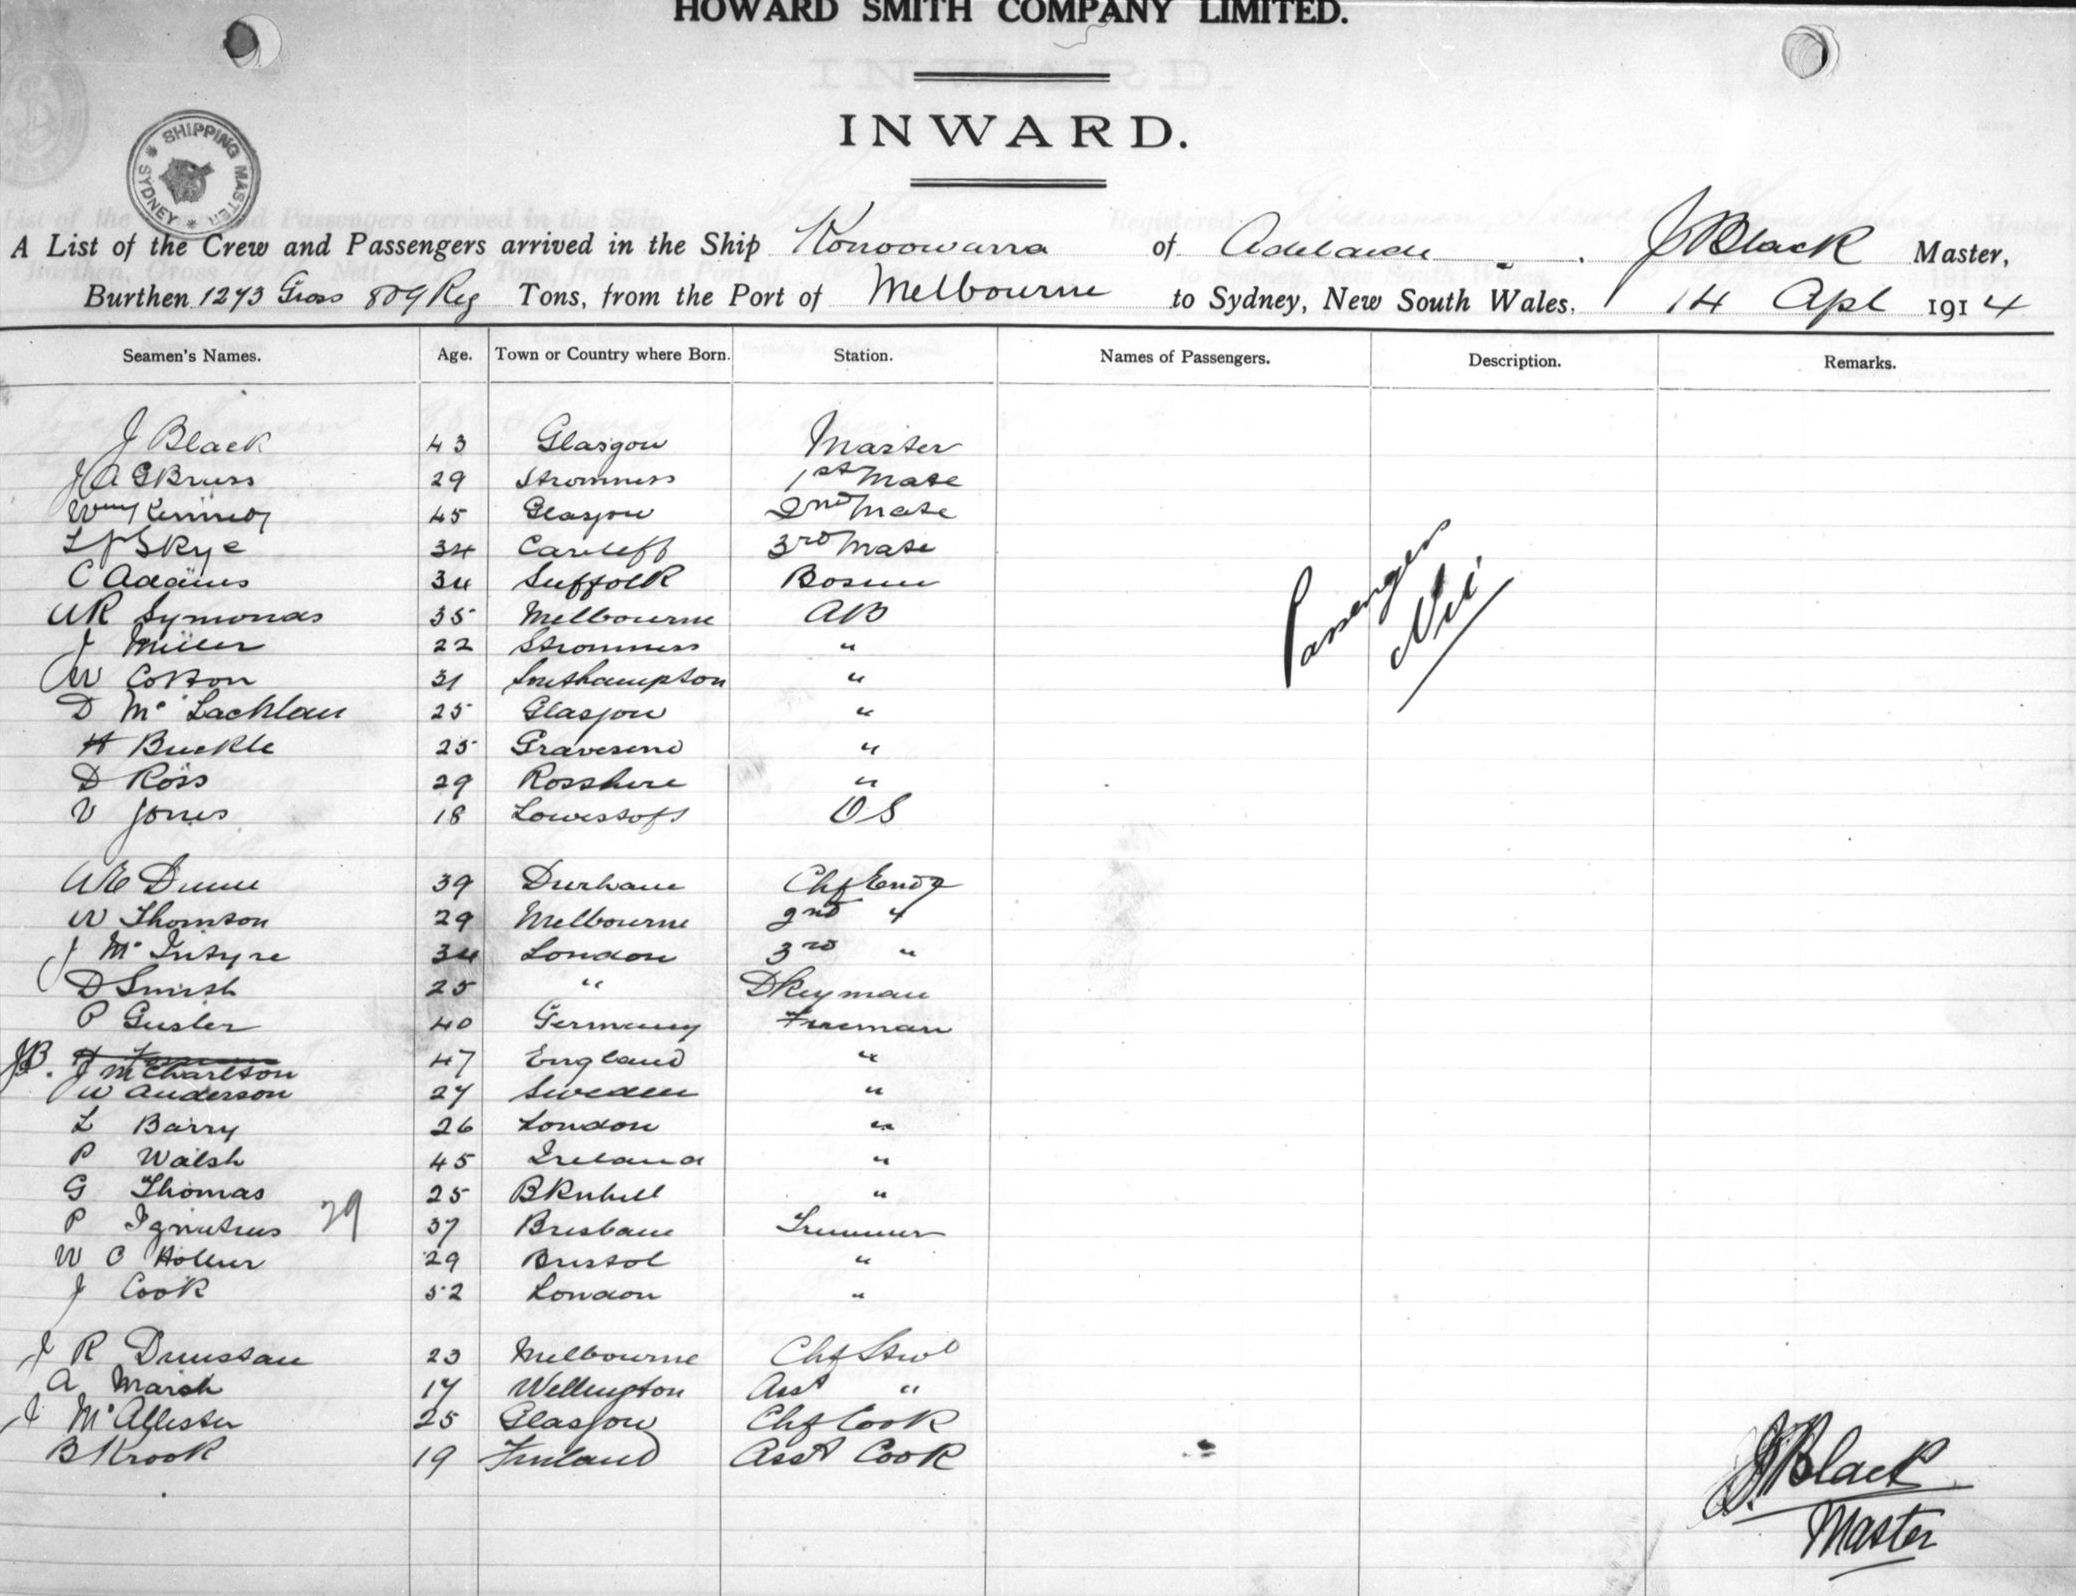 HOWARD SMITH COMPANY LIMITED.
INWARD.
SHIPPING MASTER SYDNEY
A List of the Crew and Passengers arrived in the Ship Konoowarra of Adelaide J Black Master,
Burthen 1273 Gross 809 Reg Tons, from the Port of Melbourne to Sydney, New South Wales, 14 Apl 1914
Seamen's Names. Age. Town or Country where Born. Station. Names of Passengers. Description. Remarks.
J Black 43 Glasgow Master
J A G Bruss 29 Stromness 1st Mate
Wm Kennedy 45 Glasgow 2nd Mate
Skye 34 Cardiff 3rd Mate
C Adams 34 Suffolk Bosun
Passengers Nil
AR Symonds 35 Melbourne AB
J Miller 22 Stromness "
W Cotton 31 Southampton "
D McLachlan 25 Glasgow "
H Buckle 25 Gravesend "
D Ross 29 Rosshire "
V Jones 18 Lowestoft OS
Dunn 39 Durham Chf Eng
W Thomson 29 Melbourne 2nd "
J McIntyre 34 London 3rd "
D Smith 25 " Dkeyman
P Gusler 40 Germany Fireman
JB. J M Charlson 47 England "
W Anderson 27 Sweden "
L Barry 26 London "
P Walsh 45 Ireland "
G Thomas 25 BKnhill "
P 29 37 Brisbane Trimmer
W C 29 Bristol "
J Cook 52 London "
J R Dunstan 23 Melbourne Chf Stwd
A Marsh 17 Wellington Asst "
J McAllister 25 Glasgow Chf Cook
B Krook 19 Finland Asst Cook
J Black
Master